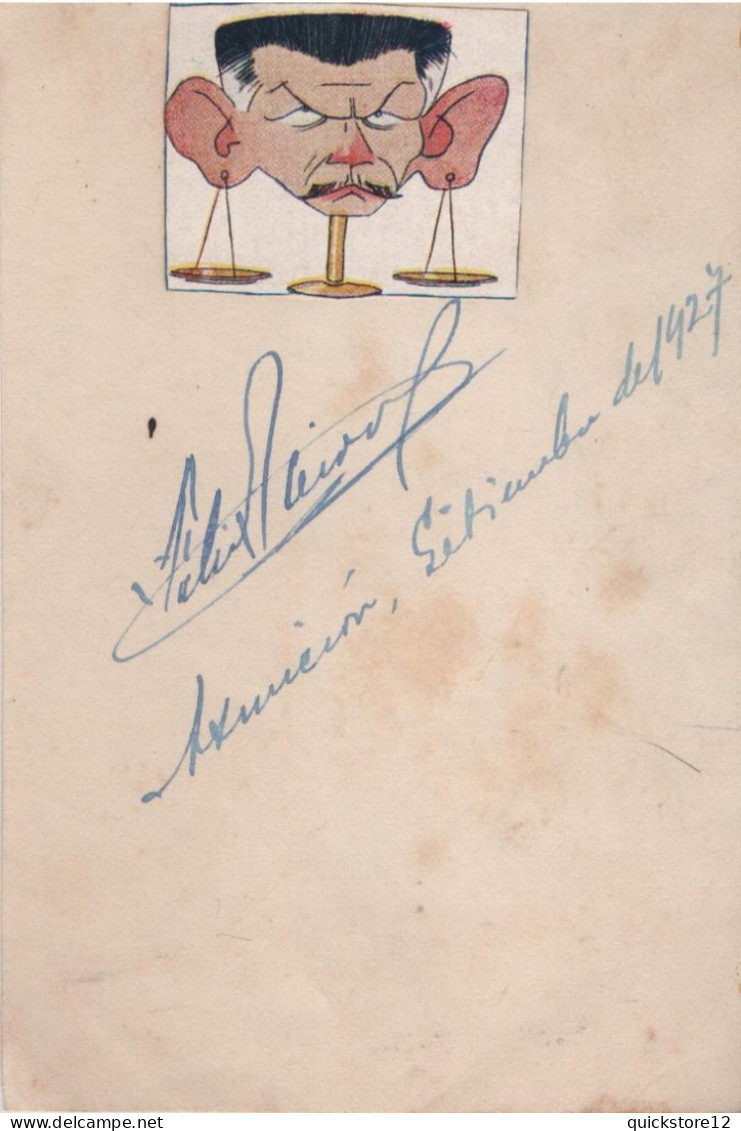 Félix Paiva
Asunción, Setiembre de 1927
delcampe.net
quickstore12